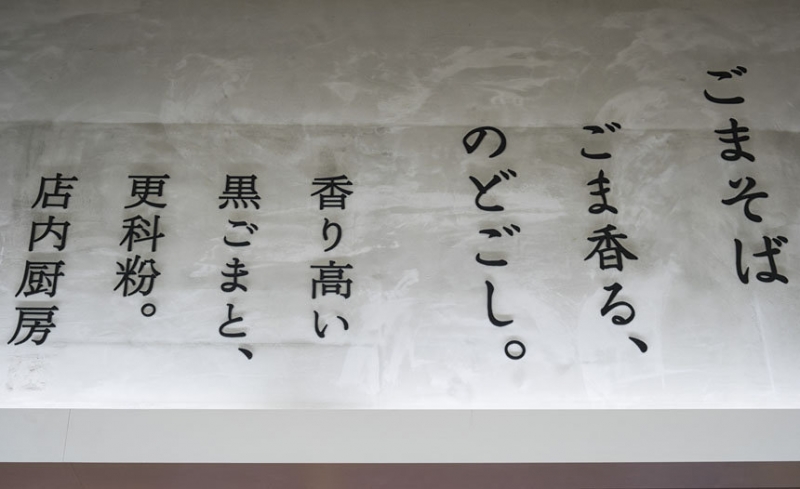 ごまそば
ごま香る、
のどごし。
香り高い
黒ごまと、
更科粉。
店内厨房